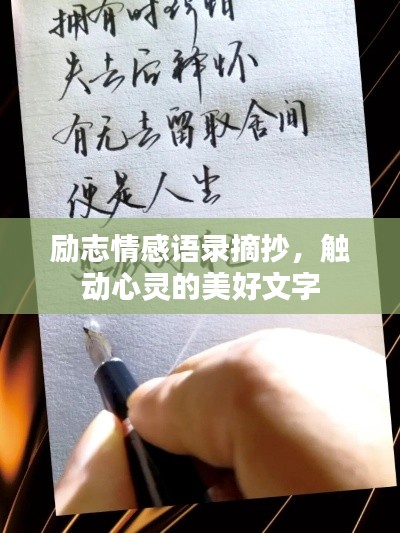 拥有时珍惜
失去后释怀
有无去留取舍间
便是人生
励志情感语录摘抄，触
动心灵的美好文字